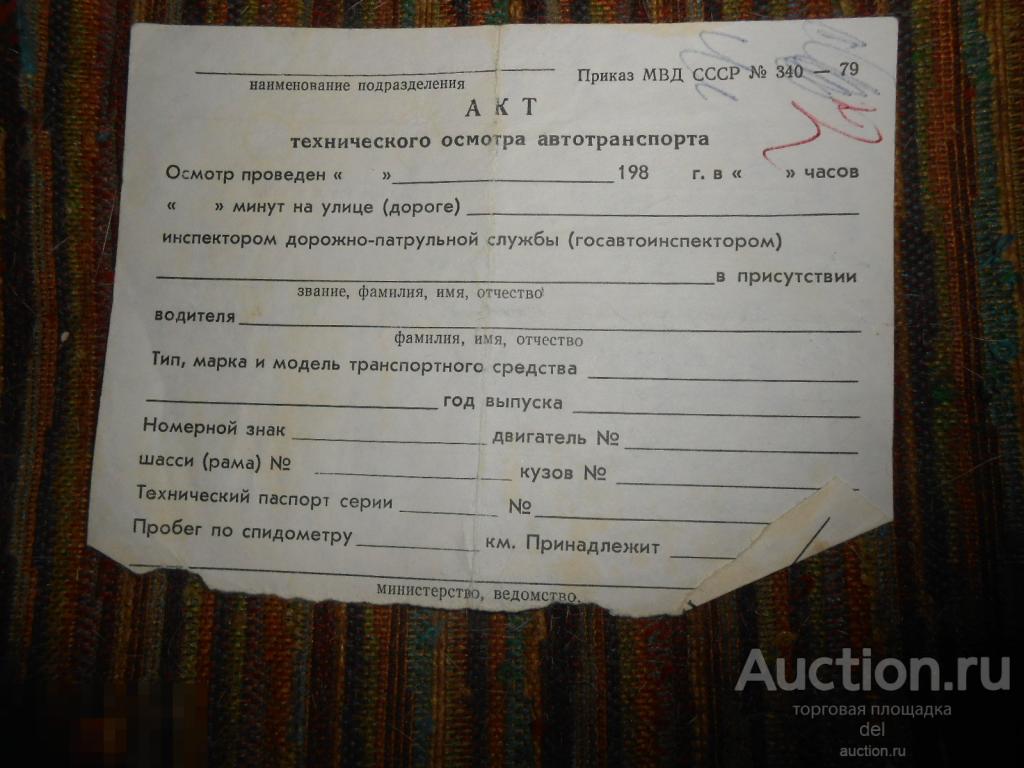 Приказ МВД СССР № 340 — 79
наименование подразделения
АКТ
технического осмотра автотранспорта
Осмотр проведен « » 198 г. в « » часов
« » минут на улице (дороге)
инспектором дорожно-патрульной службы (госавтоинспектором)
в присутствии
звание, фамилия, имя, отчество
водителя
фамилия, имя, отчество
Тип, марка и модель транспортного средства
год выпуска
Номерной знак двигатель №
шасси (рама) № кузов №
Технический паспорт серии №
Пробег по спидометру км. Принадлежит
министерство, ведомство.
Auction.ru
торговая площадка
del
auction.ru